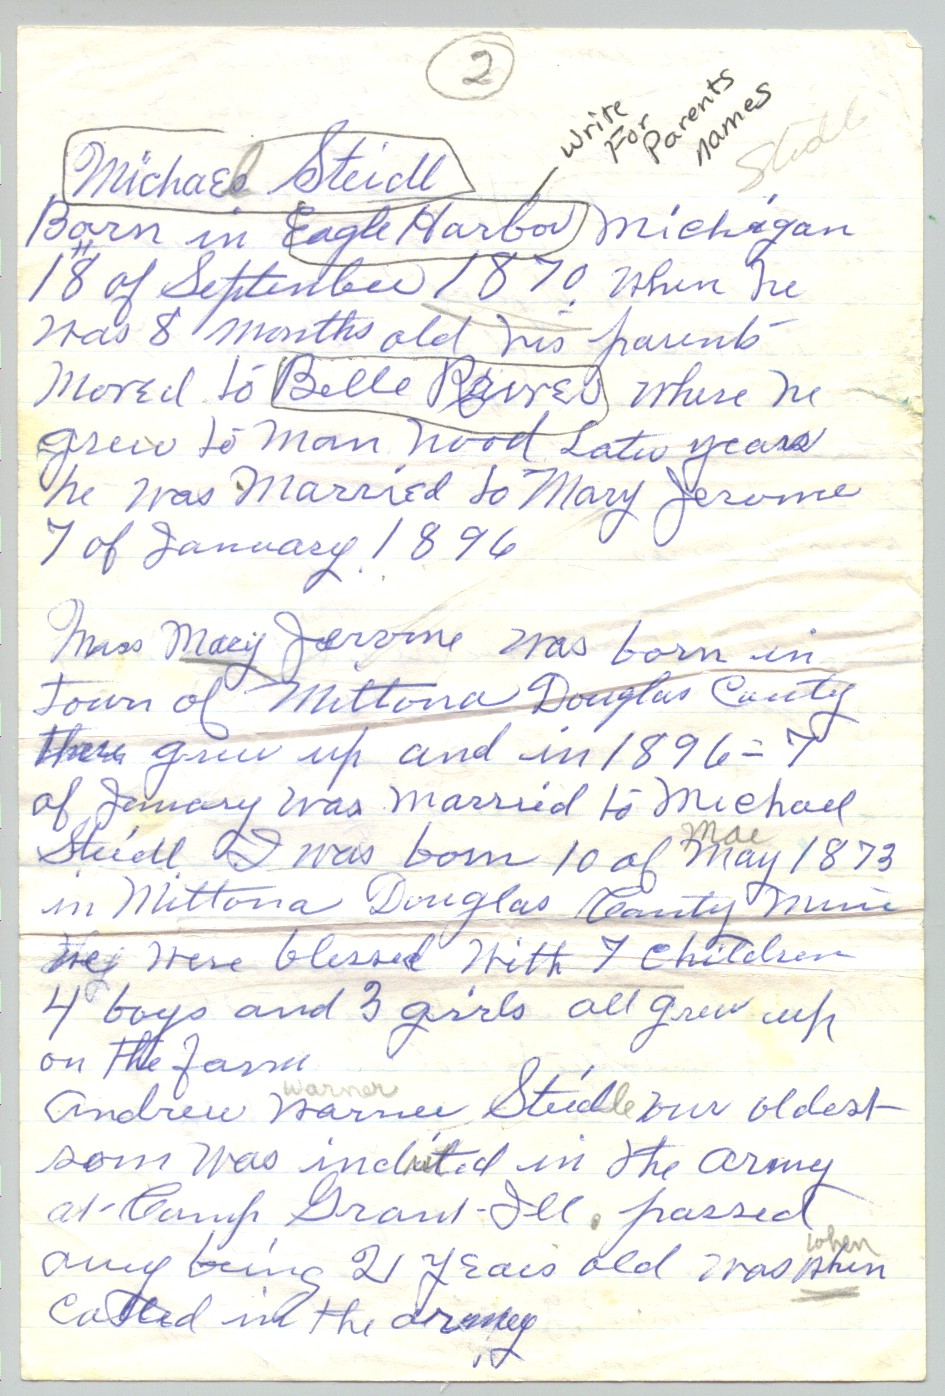 2
Write
For
Parents
names
Steidl
Michael Steidl
Born in Eagle Harbor Michigan
18 of September 1870 when he
was 8 months old his parents
moved to Belle River where he
grew to man hood Later years
he was Married to Mary Jerome
7 of January 1896
Miss Mary Jerome was born in
Town of Miltona Douglas County
there grew up and in 1896 = 7
of January was married to Michael
Steidl I was born 10 of May 1873
Mae
in Miltona Douglas County Minn
they were blessed with 7 children
4 boys and 3 girls all grew up
on the farm
warner
Andrew Warner Steidle our oldest
som was in the army
at Camp Grant Ill. passed
away being 21 years old was when
when
called in the army